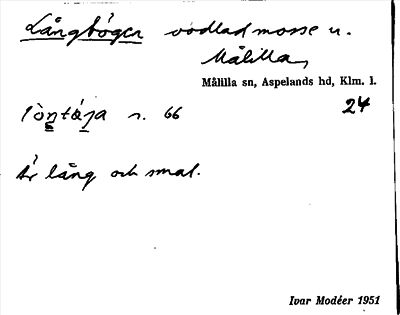 Långbógen vodlad mosse u.
Målilla,
Målilla sn, Aspelands hd, Klm. l.
24
n. 66
Är lång och smal.
Ivar Modéer 1951